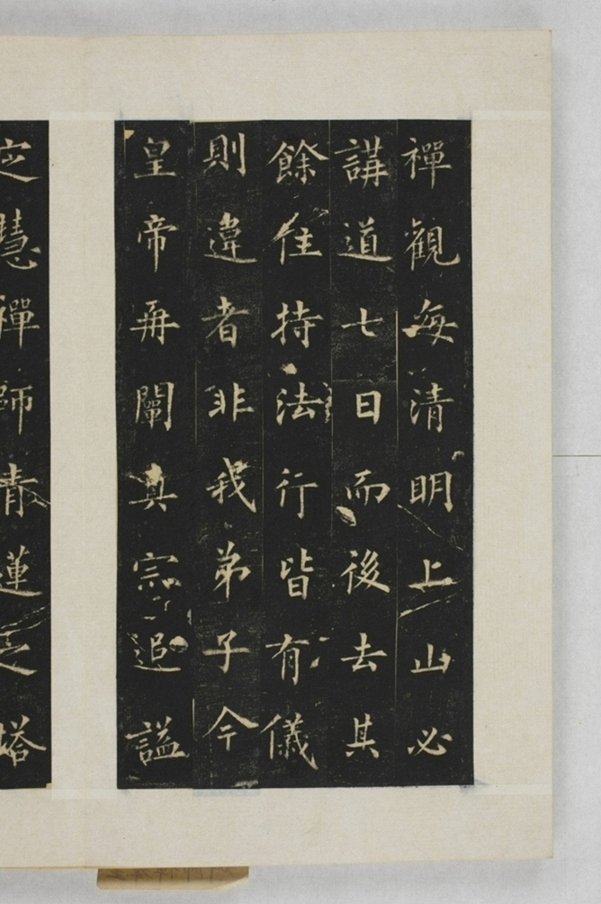 禪觀每清明上山必
講道七日而後去其
餘住持法行皆有儀
則違者非我弟子今
皇帝再闡真宗追謚
定慧禪師青蓮之塔